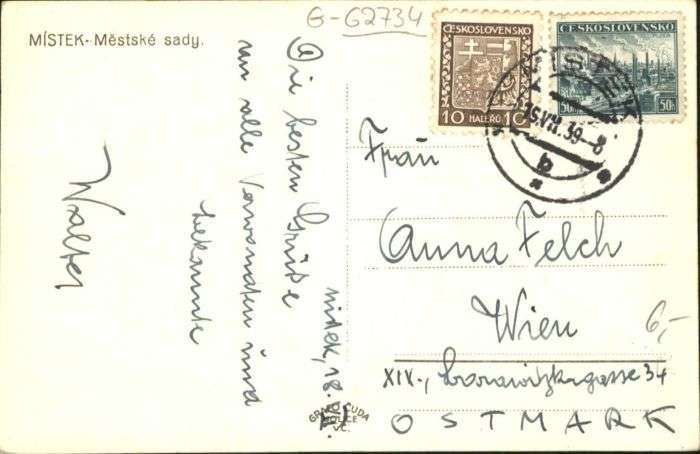 G-G2734
MÍSTEK - Městské sady.
ČESKOSLOVENSKO
10 HALÉŘŮ 10
ČESKOSLOVENSKO
50h 50h
VII. 39-8
b
Místek, 18.
Die besten Grüße
an alle Verwandten und
bekannte
Walter
Frau
Anna Felch
Wien
XIV.,
gasse 34
OSTMARK
6,-
GRAFO ČUDA
HOLICE